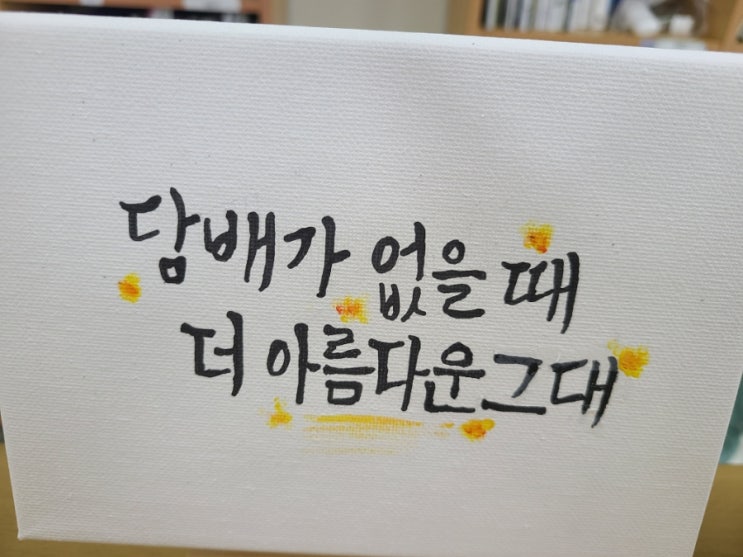 담배가 없을 때
더 아름다운 그대